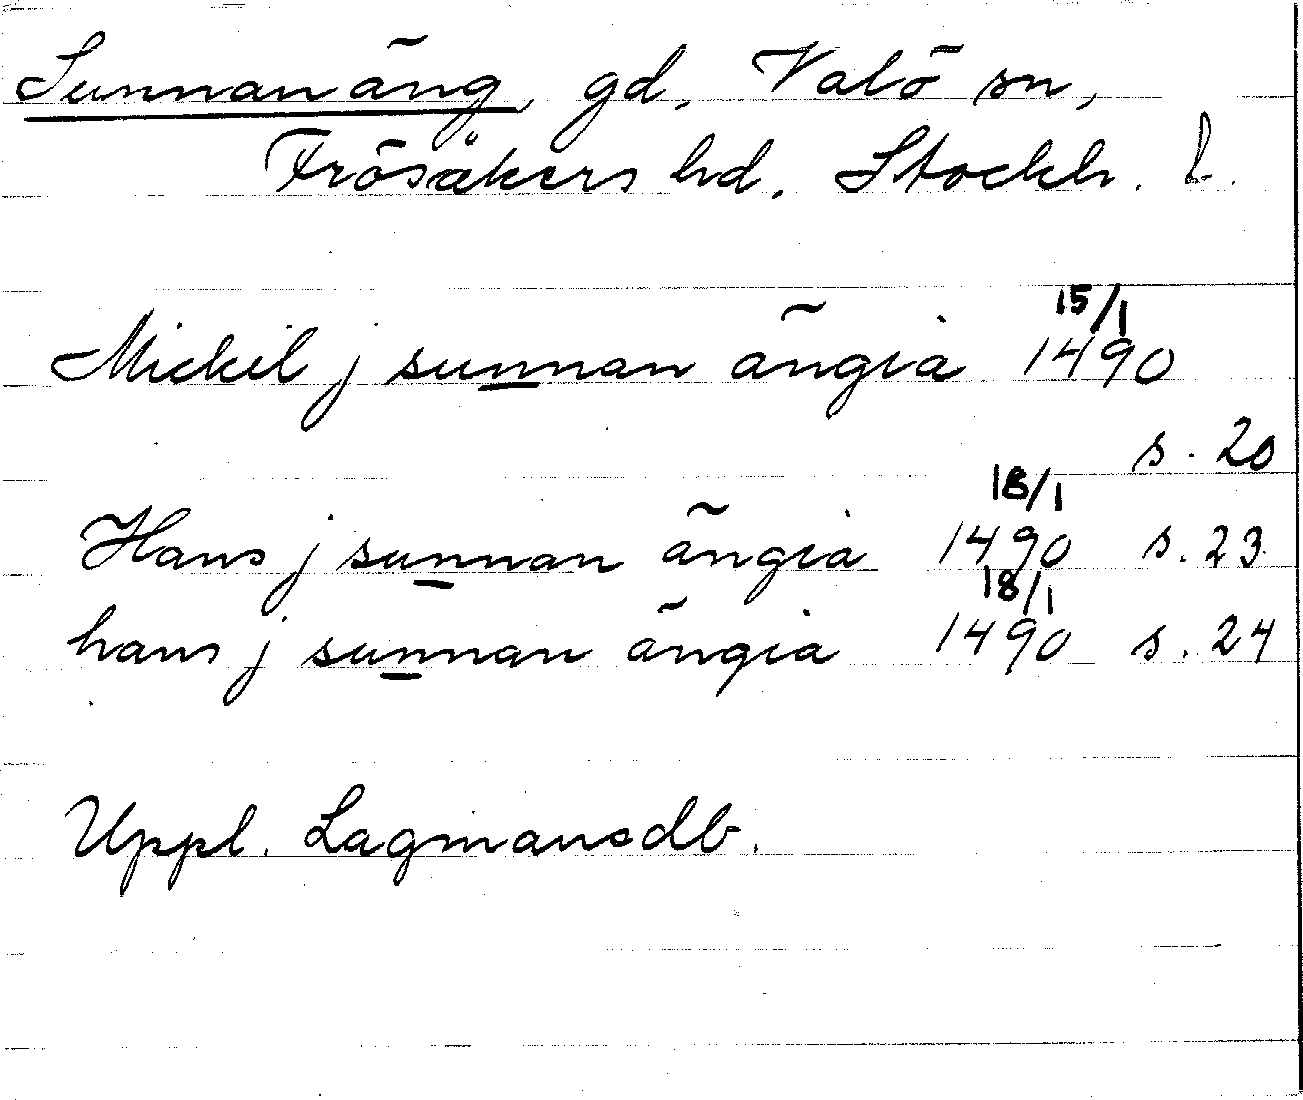 Sunnanäng, gd, Valö sn,
Frösåkers hd. Stockh. l.
Mickil j sunnan ängia 15/1 1490
s. 20
Hans j sunnan ängia 18/1 1490 s. 23
hans j sunnan ängia 18/1 1490 s. 24
Uppl. Lagmansdb.